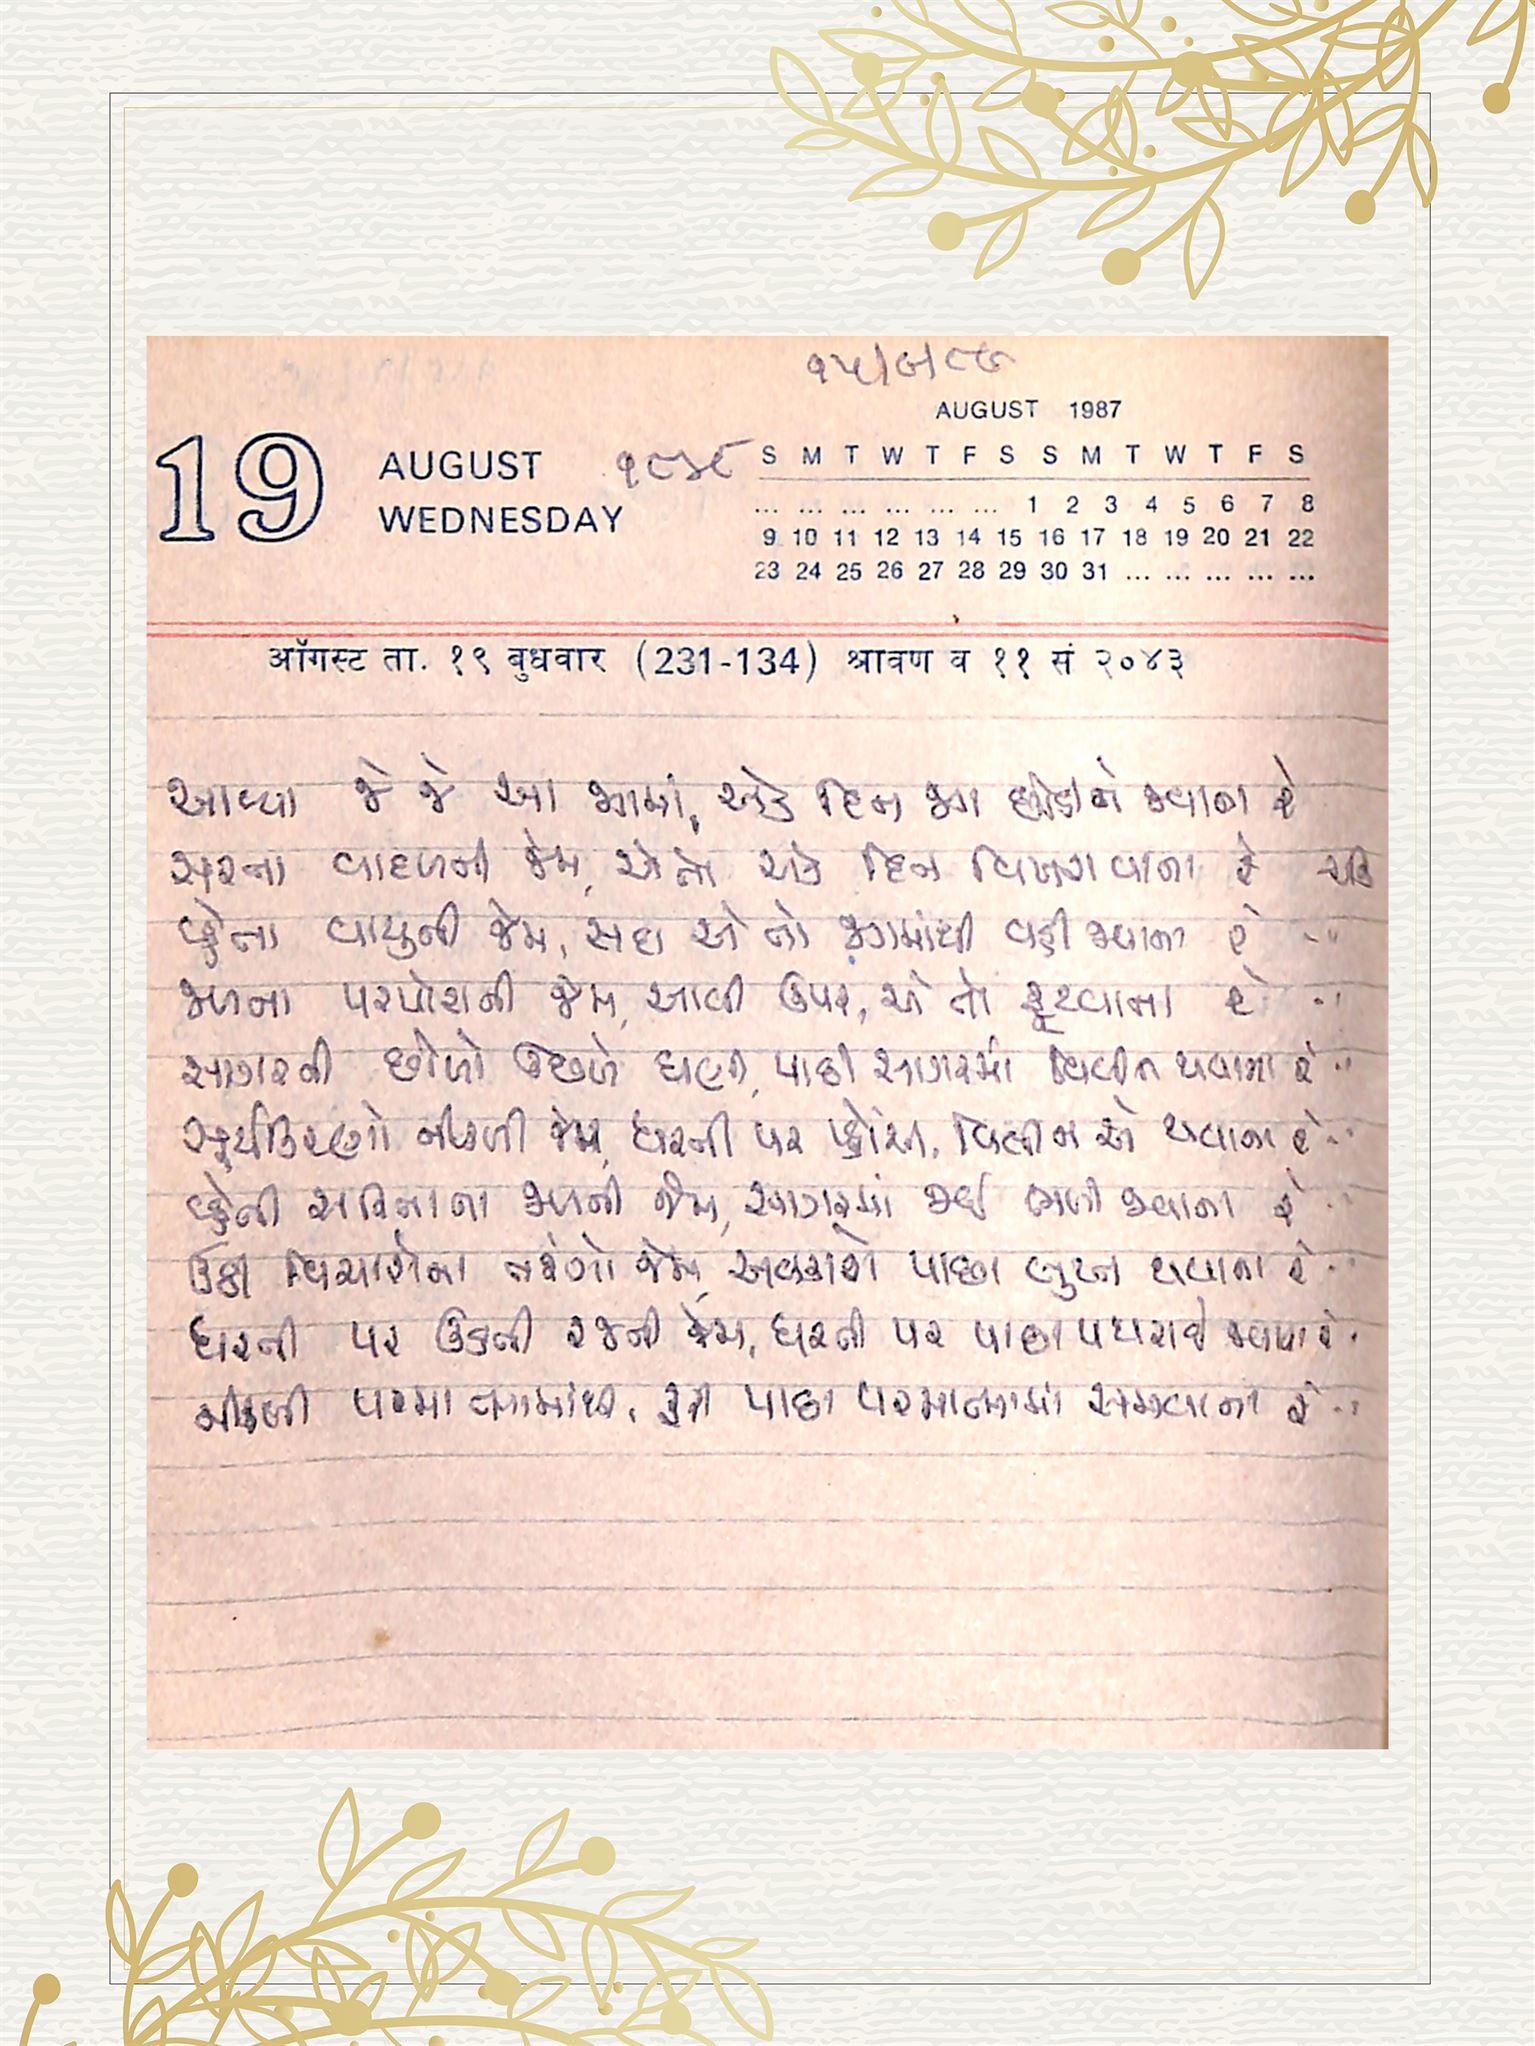 AUGUST 1987
19 AUGUST S M T W T F S S M T W T F S
WEDNESDAY ... ... ... ... ... ... 1 2 3 4 5 6 7 8
9 10 11 12 13 14 15 16 17 18 19 20 21 22
23 24 25 26 27 28 29 30 31 ... ... ... ... ...
ऑगस्ट ता. १९ बुधवार (231-134) श्रावण व ११ सं २०४३
આવ્યા જે જે આ જગમાં, એક દિન જગ છોડીને જવાના રે
સરના વાદળની જેમ, એ તો એક દિન વિખરાવાના રે
વ્હેતા વાયુની જેમ, સદા એ તો જગમાંથી વહી જવાના રે ..
જળના પરપોટાની જેમ, આવી ઉપર, એ તો ફૂટવાના રે ..
સાગરની છોળો ઉછળે ઘણી, પાછી સાગરમાં વિલીન થવાના રે ..
સૂર્યકિરણો નીકળી જેમ, ધરતી પર પ્હોંચી, વિલીન એ થવાના રે ..
વ્હેતી સરિતાના જળની જેમ, સાગરમાં જઈ ભળી જવાના રે ..
ઉઠી વિચારોના તરંગો જેમ, આવકાશે પાછા લુપ્ત થવાના રે ..
ધરતી પર ઉડતી રજની જેમ, ધરતી પર પાછા પથરાઈ જવાના રે ..
નીકળી પરમાત્મામાંથી, ફરી પાછા પરમાત્મામાં સમાવાના રે ..